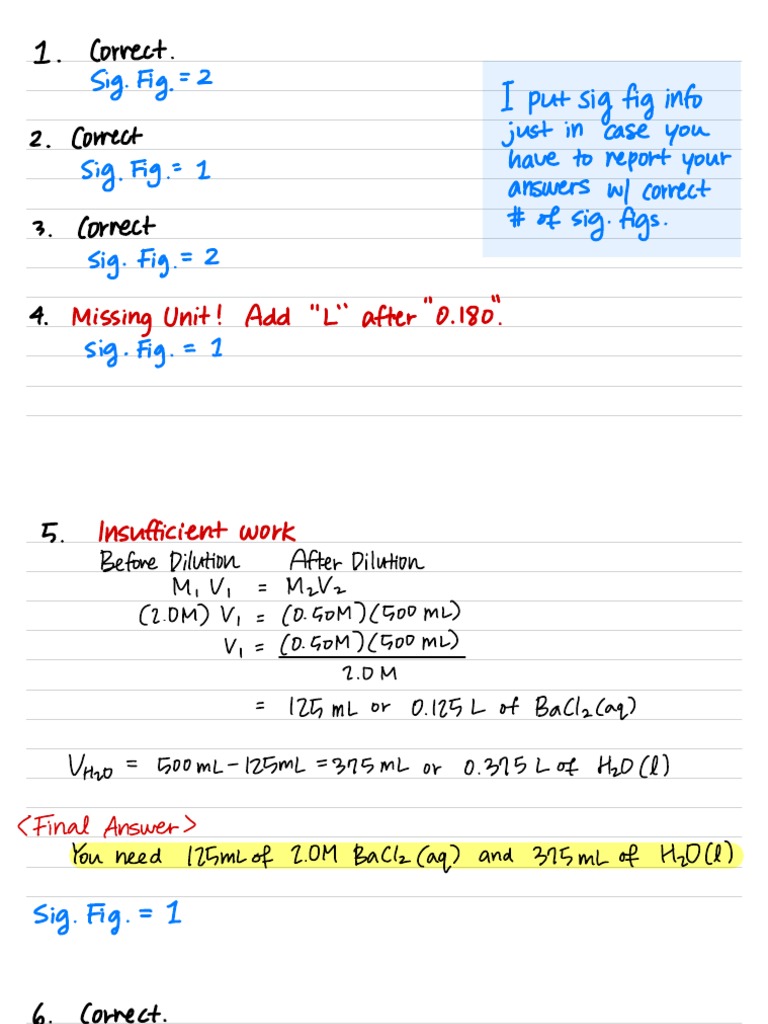 1. Correct.
Sig. Fig. = 2
I put sig fig info
just in case you
have to report your
answers w/ correct
# of sig. figs.
2. Correct
Sig. Fig. = 1
3. Correct
Sig. Fig. = 2
4. Missing Unit! Add "L" after "0.180".
Sig. Fig. = 1
5. Insufficient work
Before Dilution After Dilution
M₁ V₁ = M₂V₂
(2.0M) V₁ = (0.50M)(500 mL)
V₁ = (0.50M)(500 mL)
2.0 M
= 125 mL or 0.125 L of BaCl₂(aq)
V_H₂O = 500 mL - 125mL = 375 mL or 0.375 L of H₂O(l)
<Final Answer>
You need 125mL of 2.0M BaCl₂(aq) and 375 mL of H₂O(l)
Sig. Fig. = 1
6. Correct.